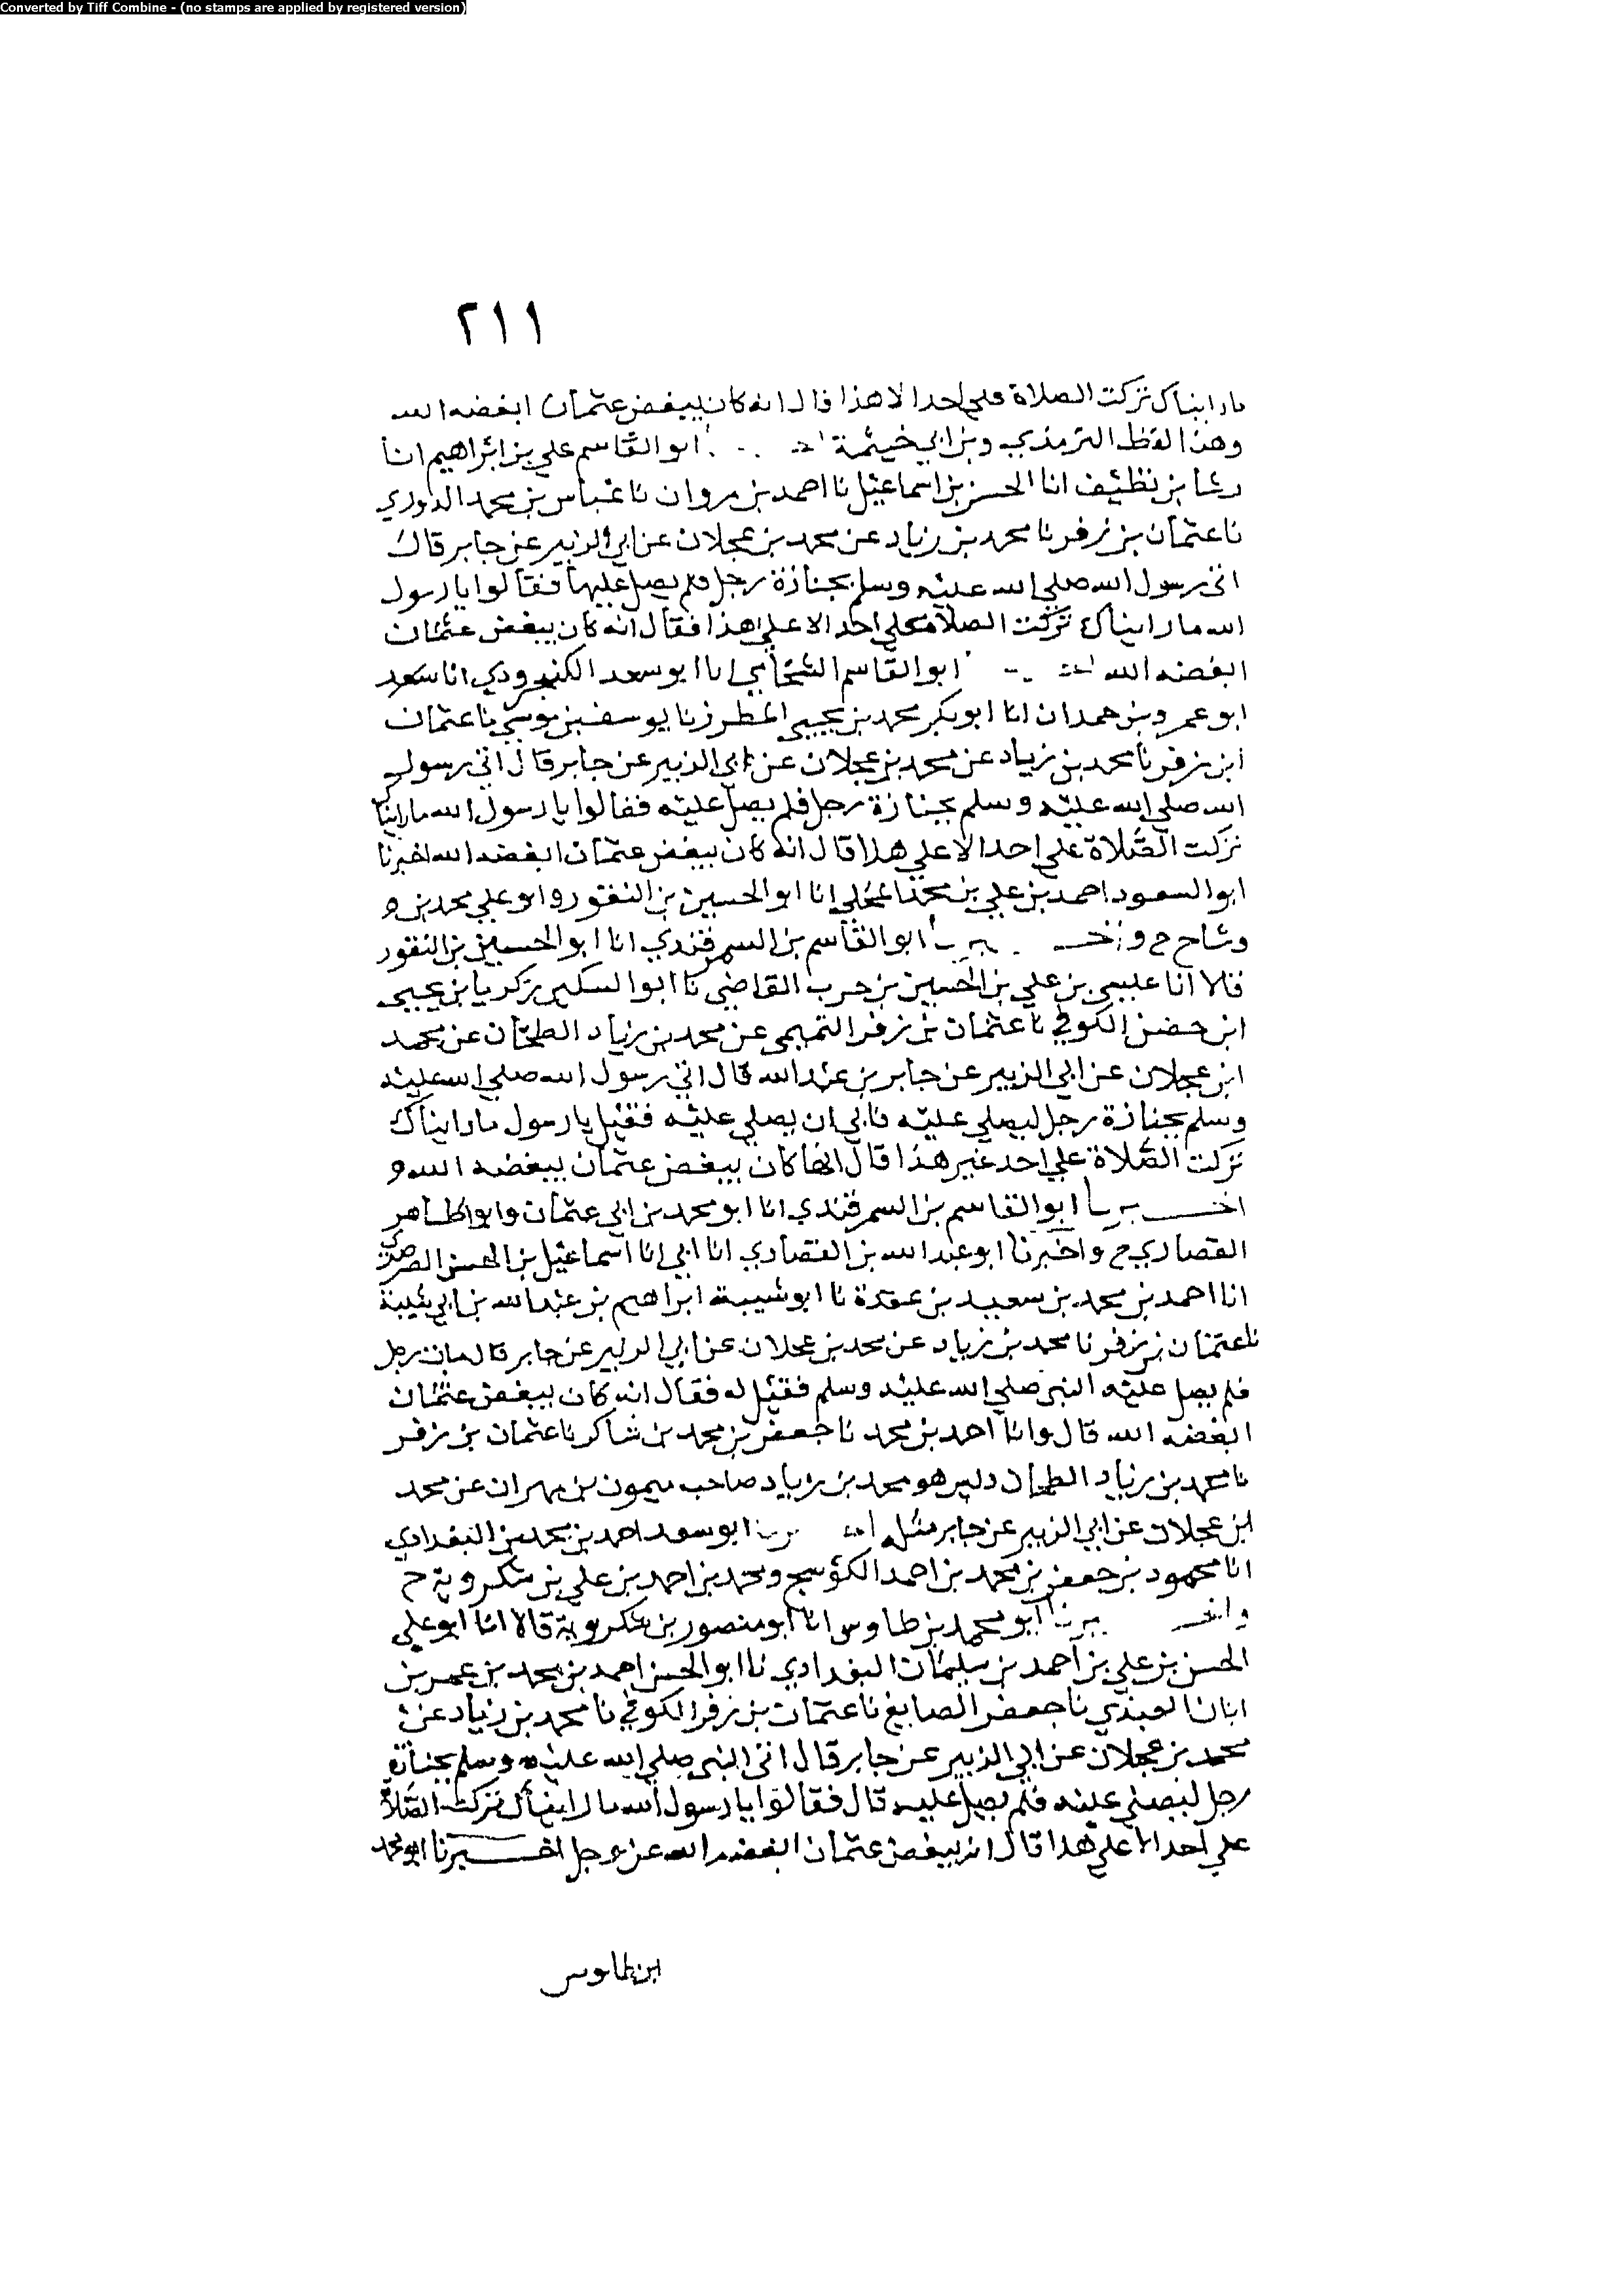 Converted by Tiff Combine - (no stamps are applied by registered version)
٢١١
ما رايناك تركت الصلاة على احد الا هذا قال انه كان يبغض عثمان ابغضه الله
وهذا لفظ الترمذي وبن ابي خيثمة ابو القاسم علي بن ابراهيم انا
رشا بن نظيف انا الحسن بن اسماعيل نا احمد بن مروان نا عباس بن محمد الدوري
نا عثمان بن زفر نا محمد بن زياد عن محمد بن عجلان عن ابي الزبير عن جابر قال
اتي رسول الله صلي الله عليه وسلم بجنازة رجل فلم يصل عليها فقالوا يا رسول
الله ما رايناك تركت الصلاة علي احد الا علي هذا فقال انه كان يبغض عثمان
ابغضه الله ابو القاسم الشحامي انا ابو سعد الكنجرودي انا سعد
ابو عمرو بن حمدان انا ابو بكر محمد بن يحيى المطرز نا يوسف بن موسي نا عثمان
ابن زفر نا محمد بن زياد عن محمد بن عجلان عن ابي الزبير عن جابر قال اتي رسول
الله صلي الله عليه وسلم بجنازة رجل فلم يصل عليه فقالوا يا رسول الله ما رايناك
تركت الصلاة علي احد الا علي هذا قال انه كان يبغض عثمان ابغضه الله اخبرنا
ابو السعود احمد بن علي بن انا ابو الحسين بن النقور وابو علي محمد بن و
وشاح ح و اخـ ـبرنا ابو القاسم بن السمرقندي انا ابو الحسين بن النقور
قالا انا عيسى بن علي بن الحسين بن حرب القاضي نا ابو السكين زكريا بن يحيى
ابن حضن الكوفي نا عثمان بن زفر التميمي عن محمد بن زياد الطحان عن محمد
ابن عجلان عن ابي الزبير عن جابر بن عبد الله قال اتي رسول الله صلي الله عليه
وسلم بجنازة رجل ليصلي عليه فابي ان يصلي عليه فقيل يا رسول ما رايناك
تركت الصلاة علي احد غير هذا قال انها كان يبغض عثمان يبغضه الله و
اخـــبرنا ابو القاسم بن السمرقندي انا ابو محمد بن ابي عثمان وابو الطاهر
القصاري ح واخبرنا ابو عبد الله بن القصاري انا ابي انا اسماعيل بن الحسن الصرصري
انا احمد بن محمد بن سعيد بن عقدة نا ابو شيبة ابراهيم بن عبد الله بن ابي شيبة
نا عثمان بن زفر نا محمد بن زياد عن محمد بن عجلان عن ابي الزبير عن جابر قال مات رجل
فلم يصل عليه النبي صلي الله عليه وسلم فقيل له فقال انه كان يبغض عثمان
ابغضه الله قال وانا احمد بن محمد نا جعفر بن محمد بن شاكر نا عثمان بن زفر
نا محمد بن زياد الطحان وليس هو محمد بن زياد صاحب ميمون بن مهران عن محمد
ابن عجلان عن ابي الزبير عن جابر مثله ابو سعد احمد بن محمد بن البغدادي
انا محمود بن جعفر بن محمد بن احمد الكوسج ومحمد بن احمد بن علي بن شكرويه ح
واخــ ـبرنا ابو محمد بن طاوس انا ابو منصور بن شكرويه قالا انا ابو علي
الحسن بن علي بن احمد بن سليمان البغدادي نا ابو الحسن احمد بن محمد بن عمر بن
ابان العبدي نا جعفر الصايغ نا عثمان بن زفر الكوفي نا محمد بن زياد عن
محمد بن عجلان عن ابي الزبير عن جابر قال اتى النبي صلي الله عليه وسلم بجنازة
رجل ليصلي عليه فلم يصل عليه قال فقالوا يا رسول الله ما رايناك تركت الصلاة
علي احد الا علي هذا قال انه يبغض عثمان ابغضه الله عز وجل اخـــبرنا ابو محمد
بن طاوس